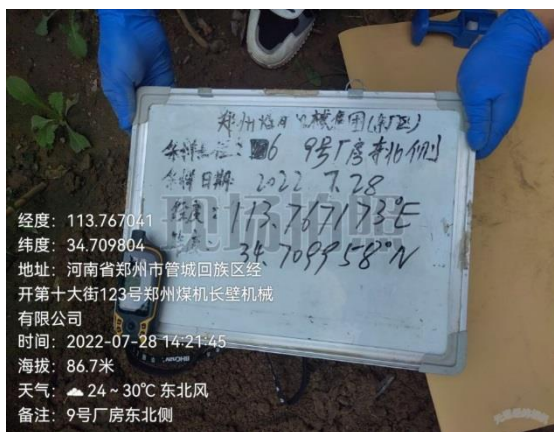 郑州煤矿机械集团(东厂区)
采样点位: 6 9号厂房东北侧
采样日期: 2022 7.28
经度: 113.767173°E
34.709958°N
现场拍照
经度:113.767041
纬度:34.709804
地址:河南省郑州市管城回族区经
开第十大街123号郑州煤机长壁机械
有限公司
时间:2022-07-28 14:21:45
海拔:86.7米
天气:☁24~30℃ 东北风
备注:9号厂房东北侧